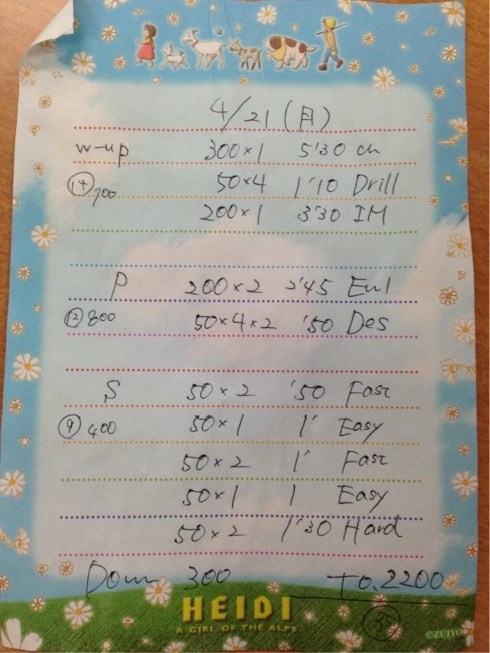 4/21 (月)
w-up 300×1 5'30 ch
⑭ 700 50×4 1'10 Drill
200×1 3'30 IM
P 200×2 2'45 Evil
⑫ 800 50×4×2 '50 Des
S 50×2 '50 Fast
⑨ 400 50×1 1' Easy
50×2 1' Fast
50×1 1 Easy
50×2 1'30 Hard
Down 300 To.2200
HEIDI
A GIRL OF THE ALPS
©ZUIYO